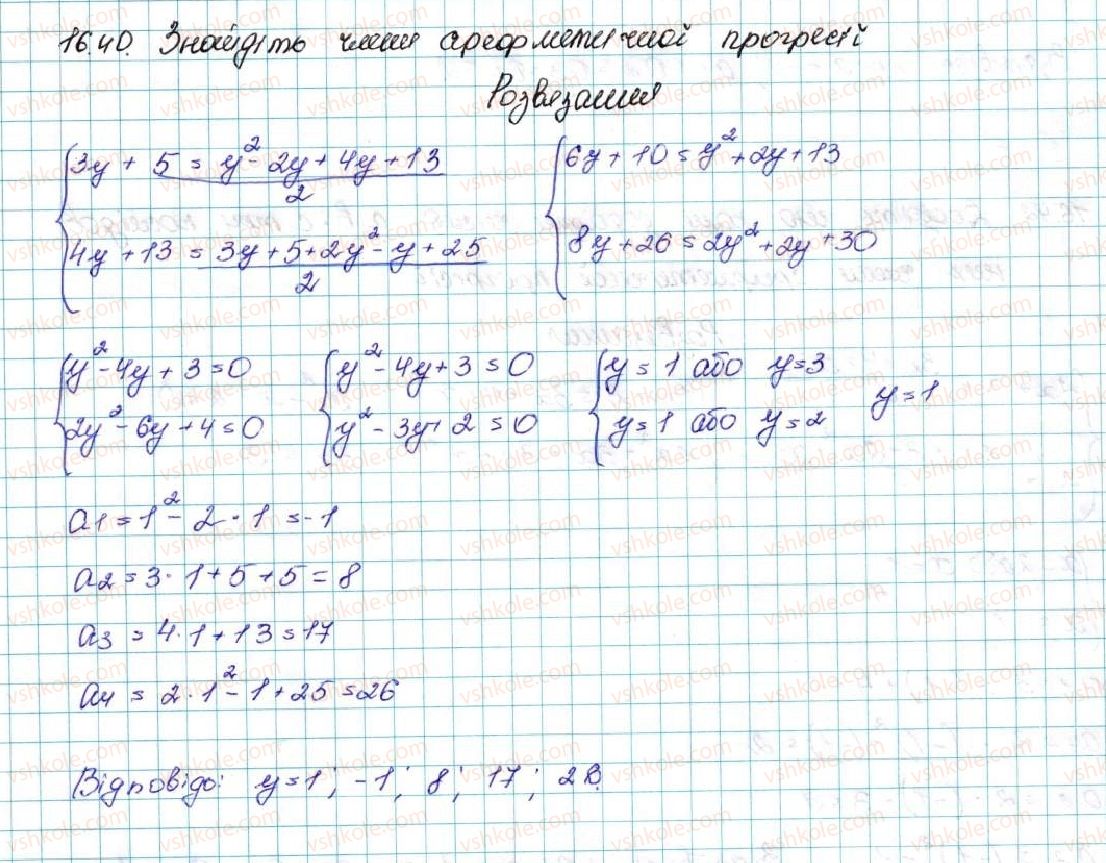 16.40. Знайдіть члени арифметичної прогресії
Розвязання
{3y + 5 = (y² - 2y + 4y + 13)/2
4y + 13 = (3y + 5 + 2y² - y + 25)/2
{6y + 10 = y² + 2y + 13
8y + 26 = 2y² + 2y + 30
{y² - 4y + 3 = 0
2y² - 6y + 4 = 0
{y² - 4y + 3 = 0
y² - 3y + 2 = 0
{y = 1 або y = 3
y = 1 або y = 2
y = 1
a1 = 1² - 2 · 1 = -1
a2 = 3 · 1 + 5 + 5 = 8
a3 = 4 · 1 + 13 = 17
a4 = 2 · 1² - 1 + 25 = 26
Відповідь: y = 1; -1; 8; 17; 26.